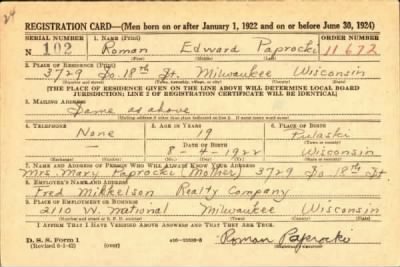 24
REGISTRATION CARD—(Men born on or after January 1, 1922 and on or before June 30, 1924)
SERIAL NUMBER 1. NAME (Print) ORDER NUMBER
N 102 Roman Edward Paprocki 11672
(First) (Middle) (Last)
2. PLACE OF RESIDENCE (Print)
3729 So. 18th St. Milwaukee Wisconsin
(Number and street) (Town, township, village, or city) (County) (State)
[THE PLACE OF RESIDENCE GIVEN ON THE LINE ABOVE WILL DETERMINE LOCAL BOARD
JURISDICTION; LINE 2 OF REGISTRATION CERTIFICATE WILL BE IDENTICAL]
3. MAILING ADDRESS
Same as above
[Mailing address if other than place indicated on line 2. If same insert word same]
4. TELEPHONE 5. AGE IN YEARS 6. PLACE OF BIRTH
None 19 Pulaski
DATE OF BIRTH
8-4-1922 Wisconsin
7. NAME AND ADDRESS OF PERSON WHO WILL ALWAYS KNOW YOUR ADDRESS
Mrs. Mary Paprocki (Mother) 3729 So. 18th St
8. EMPLOYER'S NAME AND ADDRESS
Fred Mikkelson Realty Company
9. PLACE OF EMPLOYMENT OR BUSINESS
2110 W. National Milwaukee Wisconsin
I AFFIRM THAT I HAVE VERIFIED ABOVE ANSWERS AND THAT THEY ARE TRUE.
D. S. S. Form 1
(Revised 6-1-42) (over) Roman Paprocki